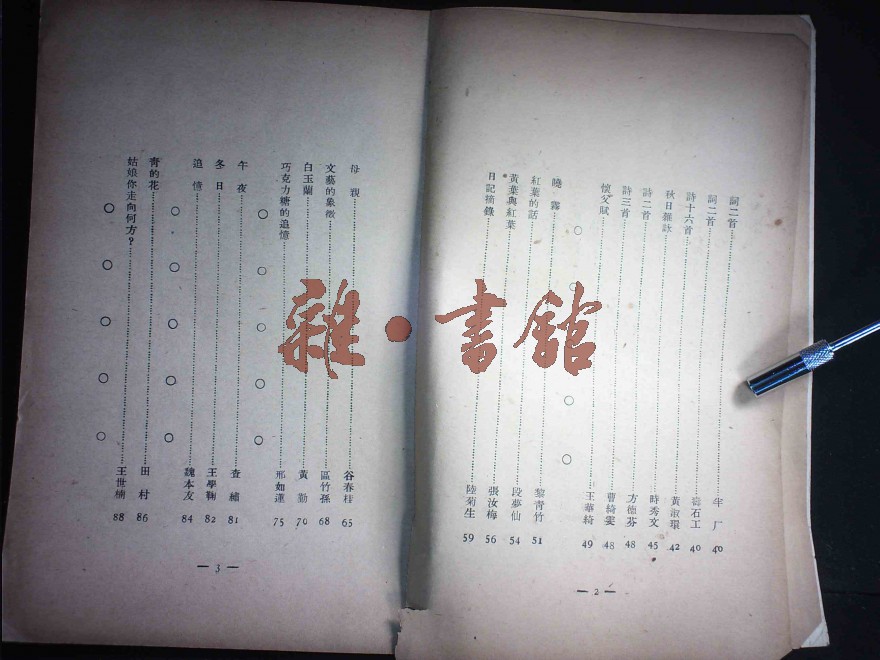 詞二首 牟厂 40
詞二首 石工 40
詩十六首 黃淑環 42
秋日雜詠 時秀文 45
詩二首 方德芬 48
詩三首 曹綺雯 48
懷父賦 王華綺 49
○ ○ ○ ○
曉霧 黎青竹 51
紅葉的話 段夢仙 54
黃葉與紅葉 張汝梅 56
日記摘錄 陸菊生 59
— 2 —
母親 谷春桂 65
文藝的象徵 區竹孫 68
白玉蘭 黃勤 70
巧克力糖的追憶 邢如蓮 75
○ ○ ○ ○ ○
午夜 查繡 81
冬日 王學鞠 82
追憶 魏本友 84
○ ○ ○ ○ ○
青的花 田村 86
姑娘你走向何方？ 王世楠 88
○ ○ ○ ○ ○
— 3 —
雜·書舘